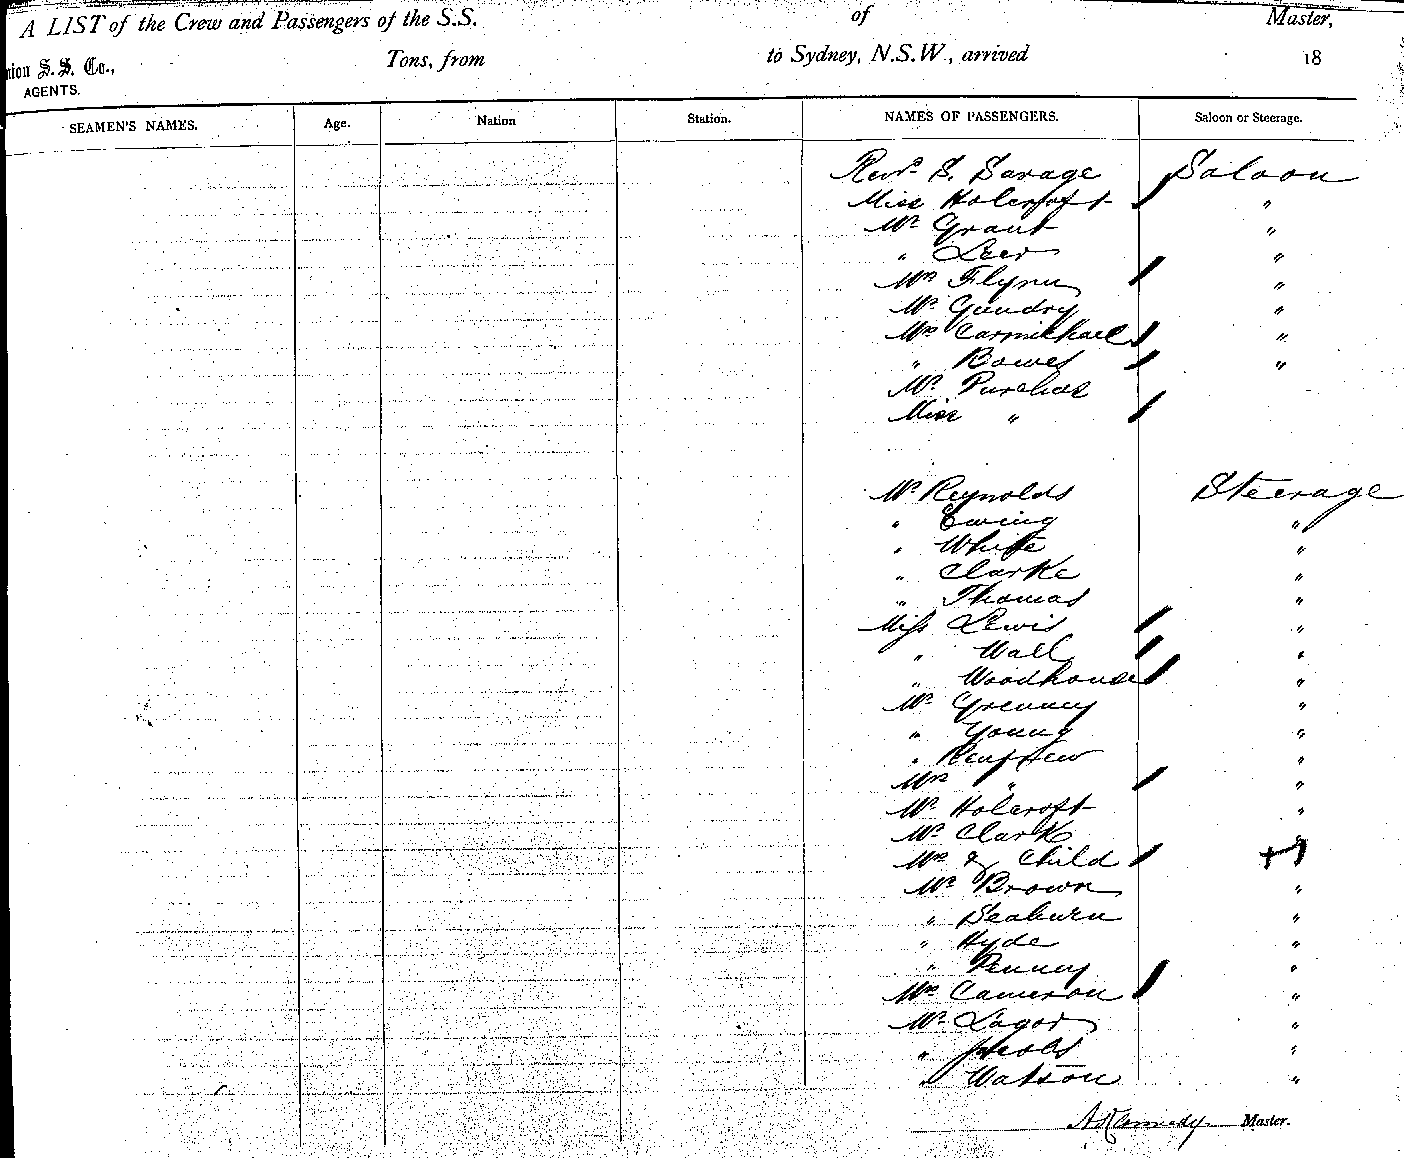 A LIST of the Crew and Passengers of the S.S. of Master,
nion S. S. Co., Tons, from to Sydney, N.S.W., arrived 18
AGENTS.
SEAMEN'S NAMES. Age. Nation Station. NAMES OF PASSENGERS. Saloon or Steerage.
Revd. S. Savage Saloon
Miss Holcroft "
Mr Grant "
" Leer "
Mrs Flynn "
Mr Gundry "
Mrs Carmichael "
" Bowes "
Mr Purchas
Miss "
Mr Reynolds Steerage
" Ewing "
" White "
" Clarke "
" Thomas "
Miss Lewis "
" Wall "
" Woodhouse "
Mr Grenney "
" Young "
" Renfrew "
Mrs " "
Mr Holcroft "
Mr Clark
Mrs & Child
Mr Brown "
" Seaburn "
" Hyde "
" Penney "
Mrs Cameron "
Mr Lagor "
" Jacobs "
" Watson "
A Kennedy Master.